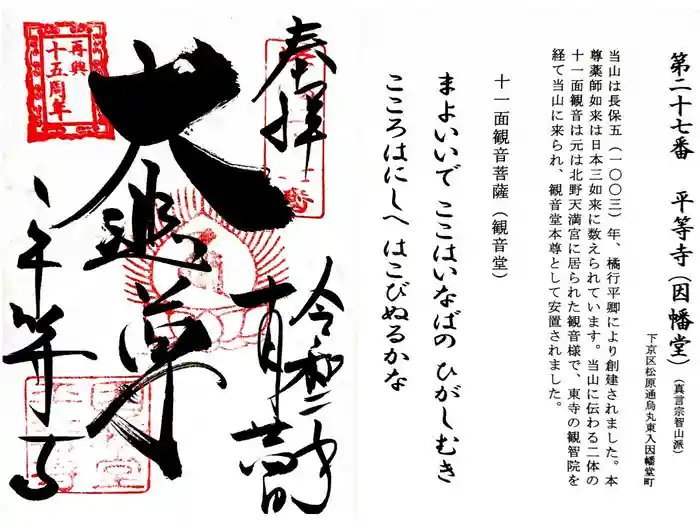 第二十七番 平等寺(因幡堂)(真言宗智山派)
下京区松原通烏丸東入因幡堂町
当山は長保五(一〇〇三)年、橘行平卿により創建されました。本
尊薬師如来は日本三如来に数えられています。当山に伝わる二体の
十一面観音は元は北野天満宮に居られた観音様で、東寺の観智院を
経て当山に来られ、観音堂本尊として安置されました。
十一面観音菩薩(観音堂)
まよいいで ここはいなばの ひがしむき
こころはにしへ はこびぬるかな
奉拝
令和二年
大
平等寺
再興
十五周年